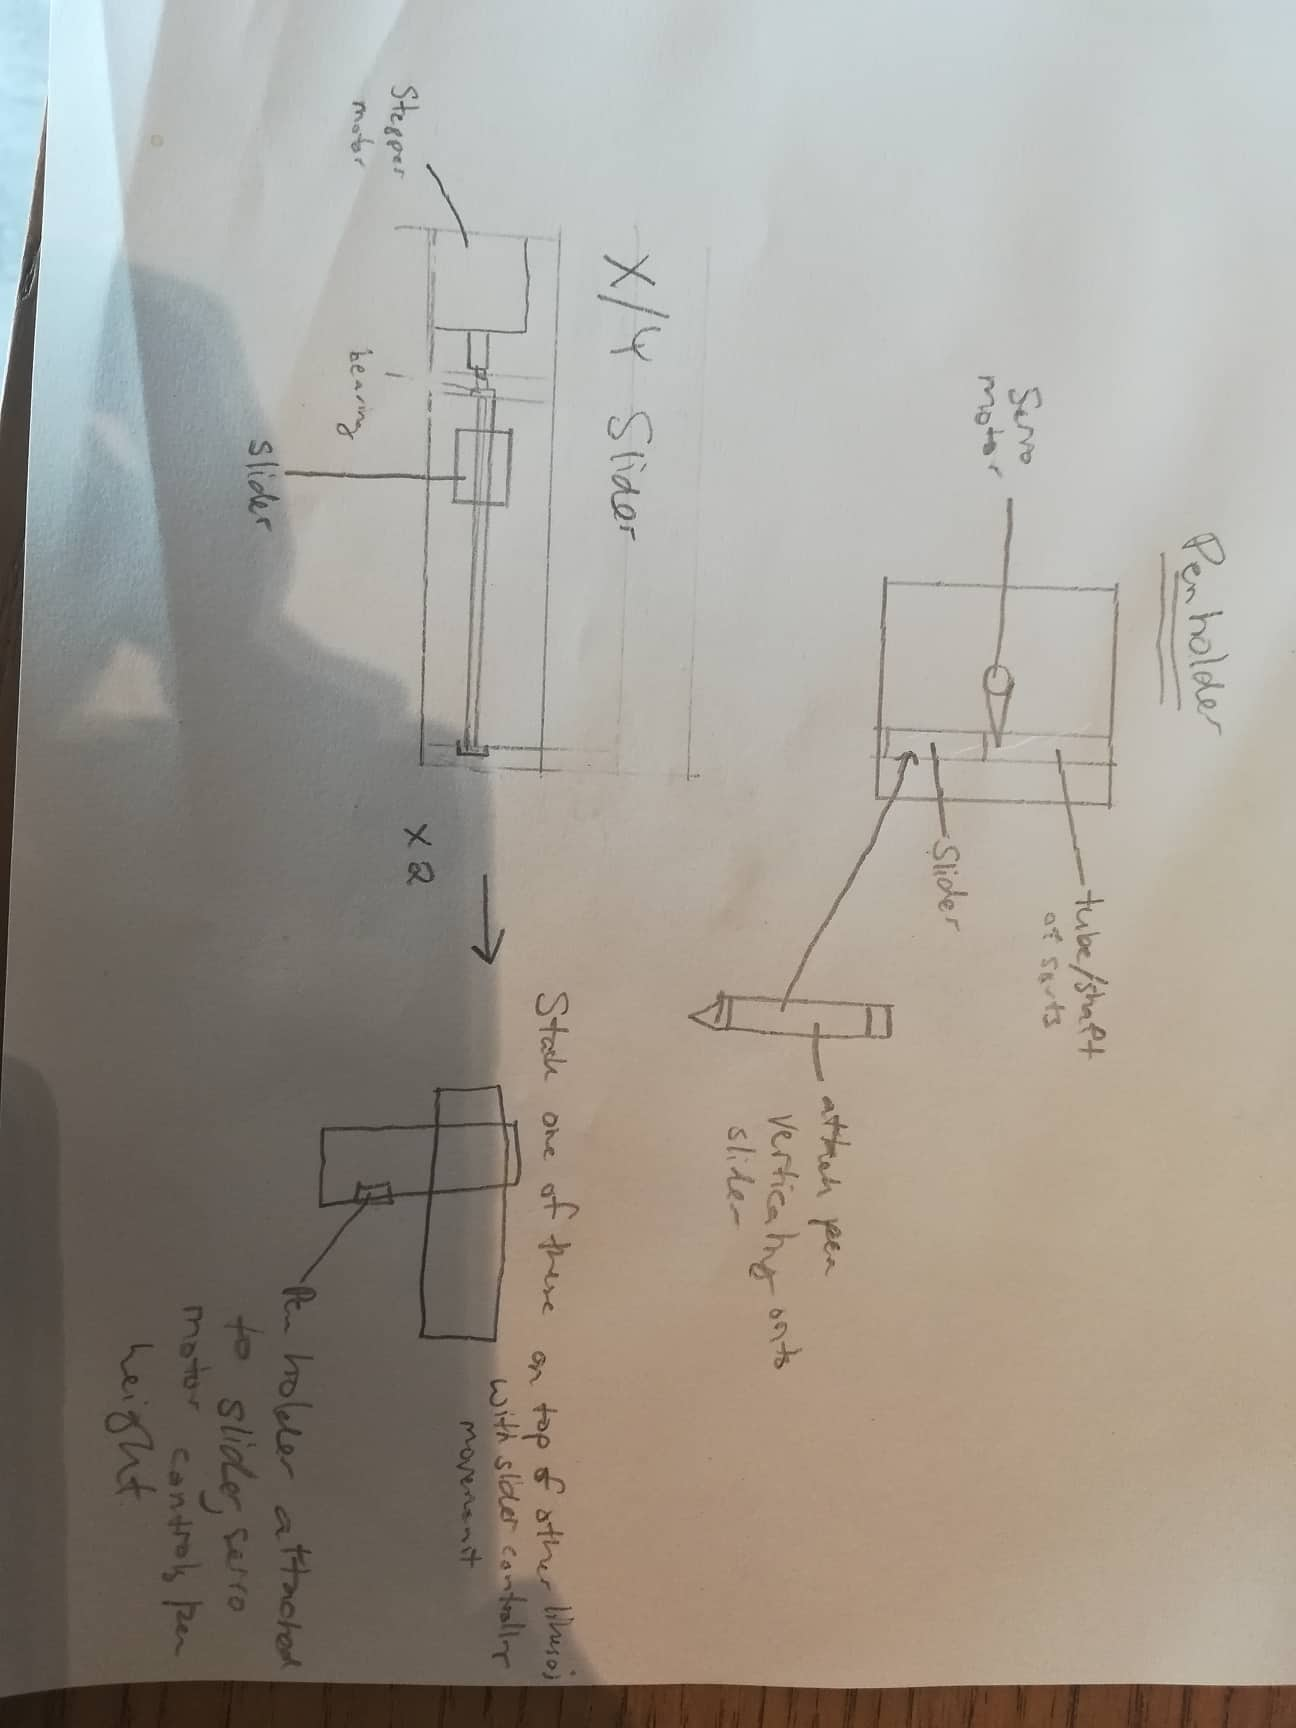 Penholder
Servo
motor
tube/shaft
of sorts
Slider
attach pen
vertically onto
slider
X/Y Slider
Stepper
motor
bearing
Slider
x2
Stack one of these on top of other like so;
with slider controlling
movement
Pen holder attached
to slider, servo
motor controls pen
height